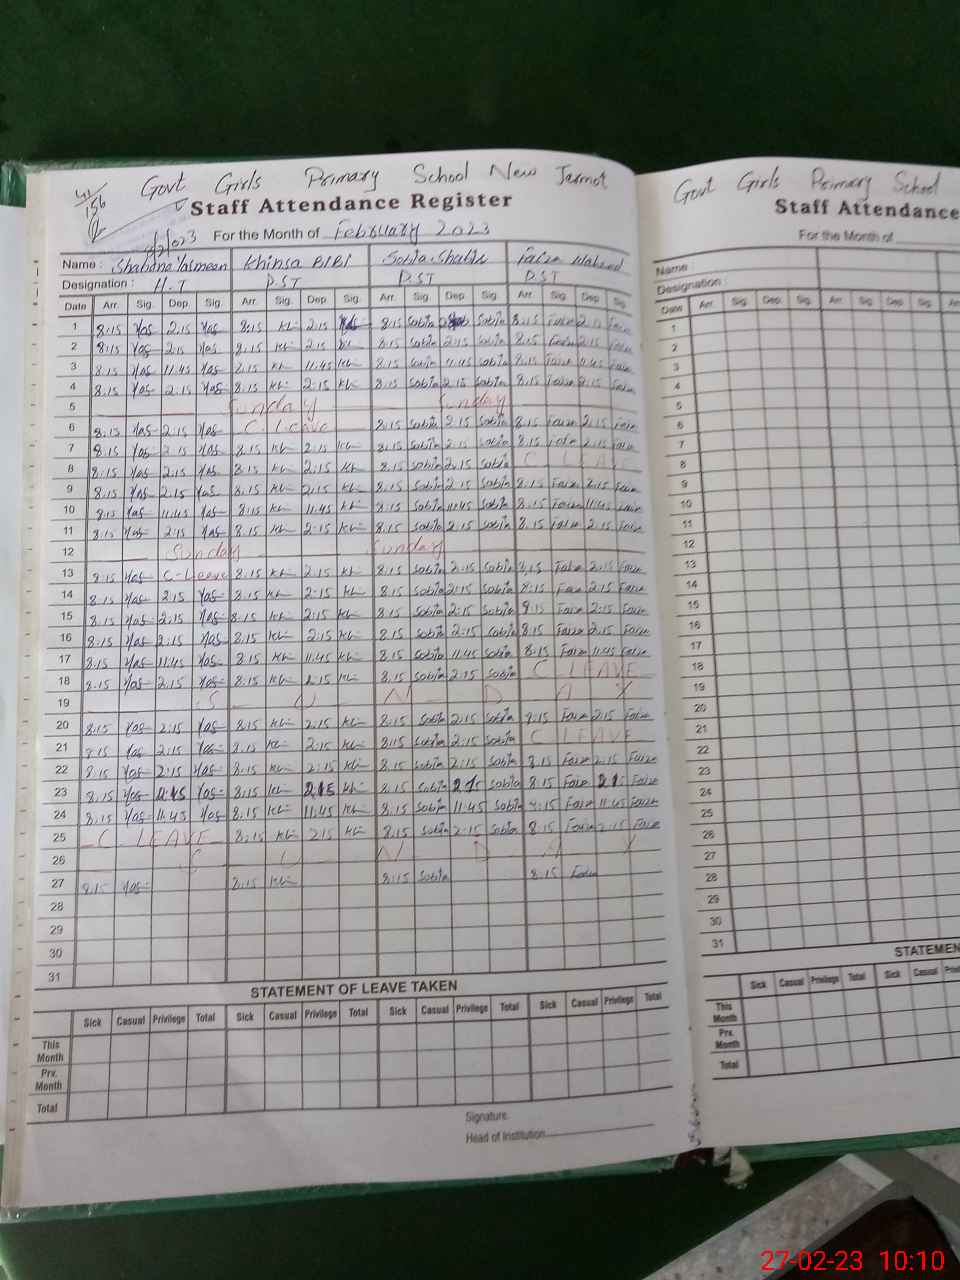 Govt Girls Primary School New Jarmot
41/156
Staff Attendance Register
8/2/023
For the Month of February 2023
Name : Shabana Yasmeen Khinsa BIBI Sobia Shafiq Faiza Naheed
Designation : H.T P.ST P.ST P.ST
Date Arr. Sig. Dep. Sig. Arr. Sig. Dep. Sig. Arr. Sig. Dep. Sig. Arr. Sig. Dep. Sig.
1 8:15 Yas 2:15 Yas 8:15 Kh 2:15 8:15 Sobia Sobia 8:15 Faiza 2:15 Faiza
2 8:15 Yas 2:15 Yas 8:15 Kh 2:15 Kh 8:15 Sobia 2:15 Sobia 8:15 Faiza 2:15 Faiza
3 8:15 Yas 11:45 Yas 8:15 Kh 11:45 Kh 8:15 Sobia 11:45 Sobia 8:15 Faiza 11:45 Faiza
4 8:15 Yas 2:15 Yas 8:15 Kh 2:15 Kh 8:15 Sobia 2:15 Sobia 8:15 Faiza 2:15 Faiza
5 Sunday Sunday
6 8:15 Yas 2:15 Yas C. Leave 8:15 Sobia 2:15 Sobia 8:15 Faiza 2:15 Faiza
7 8:15 Yas 2:15 Yas 8:15 Kh 2:15 Kh 8:15 Sobia 2:15 Sobia 8:15 Faiza 2:15 Faiza
8 8:15 Yas 2:15 Yas 8:15 Kh 2:15 Kh 8:15 Sobia 2:15 Sobia C LEAVE
9 8:15 Yas 2:15 Yas 8:15 Kh 2:15 Kh 8:15 Sobia 2:15 Sobia 8:15 Faiza 2:15 Faiza
10 8:15 Yas 11:45 Yas 8:15 Kh 11:45 Kh 8:15 Sobia 11:45 Sobia 8:15 Faiza 11:45 Faiza
11 8:15 Yas 2:15 Yas 8:15 Kh 2:15 Kh 8:15 Sobia 2:15 Sobia 8:15 Faiza 2:15 Faiza
12 Sunday Sunday
13 8:15 Yas C-Leave 8:15 Kh 2:15 Kh 8:15 Sobia 2:15 Sobia 8:15 Faiza 2:15 Faiza
14 8:15 Yas 2:15 Yas 8:15 Kh 2:15 Kh 8:15 Sobia 2:15 Sobia 8:15 Faiza 2:15 Faiza
15 8:15 Yas 2:15 Yas 8:15 Kh 2:15 Kh 8:15 Sobia 2:15 Sobia 8:15 Faiza 2:15 Faiza
16 8:15 Yas 2:15 Yas 8:15 Kh 2:15 Kh 8:15 Sobia 2:15 Sobia 8:15 Faiza 2:15 Faiza
17 8:15 Yas 11:45 Yas 8:15 Kh 11:45 Kh 8:15 Sobia 11:45 Sobia 8:15 Faiza 11:45 Faiza
18 8:15 Yas 2:15 Yas 8:15 Kh 2:15 Kh 8:15 Sobia 2:15 Sobia C LEAVE
19 S U N D A Y
20 8:15 Yas 2:15 Yas 8:15 Kh 2:15 Kh 8:15 Sobia 2:15 Sobia 8:15 Faiza 2:15 Faiza
21 8:15 Yas 2:15 Yas 8:15 Kh 2:15 Kh 8:15 Sobia 2:15 Sobia C LEAVE
22 8:15 Yas 2:15 Yas 8:15 Kh 2:15 Kh 8:15 Sobia 2:15 Sobia 8:15 Faiza 2:15 Faiza
23 8:15 Yas 2:15 Yas 8:15 Kh 2:15 Kh 8:15 Sobia 2:15 Sobia 8:15 Faiza 2:15 Faiza
24 8:15 Yas 11:45 Yas 8:15 Kh 11:45 Kh 8:15 Sobia 11:45 Sobia 8:15 Faiza 11:45 Faiza
25 C LEAVE 8:15 Kh 2:15 Kh 8:15 Sobia 2:15 Sobia 8:15 Faiza 2:15 Faiza
26 S U N D A Y
27 8:15 Yas 8:15 Kh 8:15 Sobia 8:15 Faiza
28
29
30
31
STATEMENT OF LEAVE TAKEN
Sick Casual Privilege Total Sick Casual Privilege Total Sick Casual Privilege Total Sick Casual Privilege Total
This Month
Prv. Month
Total
Signature.
Head of Institution
Govt Girls Primary School
Staff Attendance
For the Month of
Name :
Designation :
Date Arr. Sig. Dep. Sig. Arr. Sig. Dep. Sig. Arr.
1
2
3
4
5
6
7
8
9
10
11
12
13
14
15
16
17
18
19
20
21
22
23
24
25
26
27
28
29
30
31
STATEMEN
Sick Casual Privilege Total Sick Casual
This Month
Prv. Month
Total
27-02-23 10:10